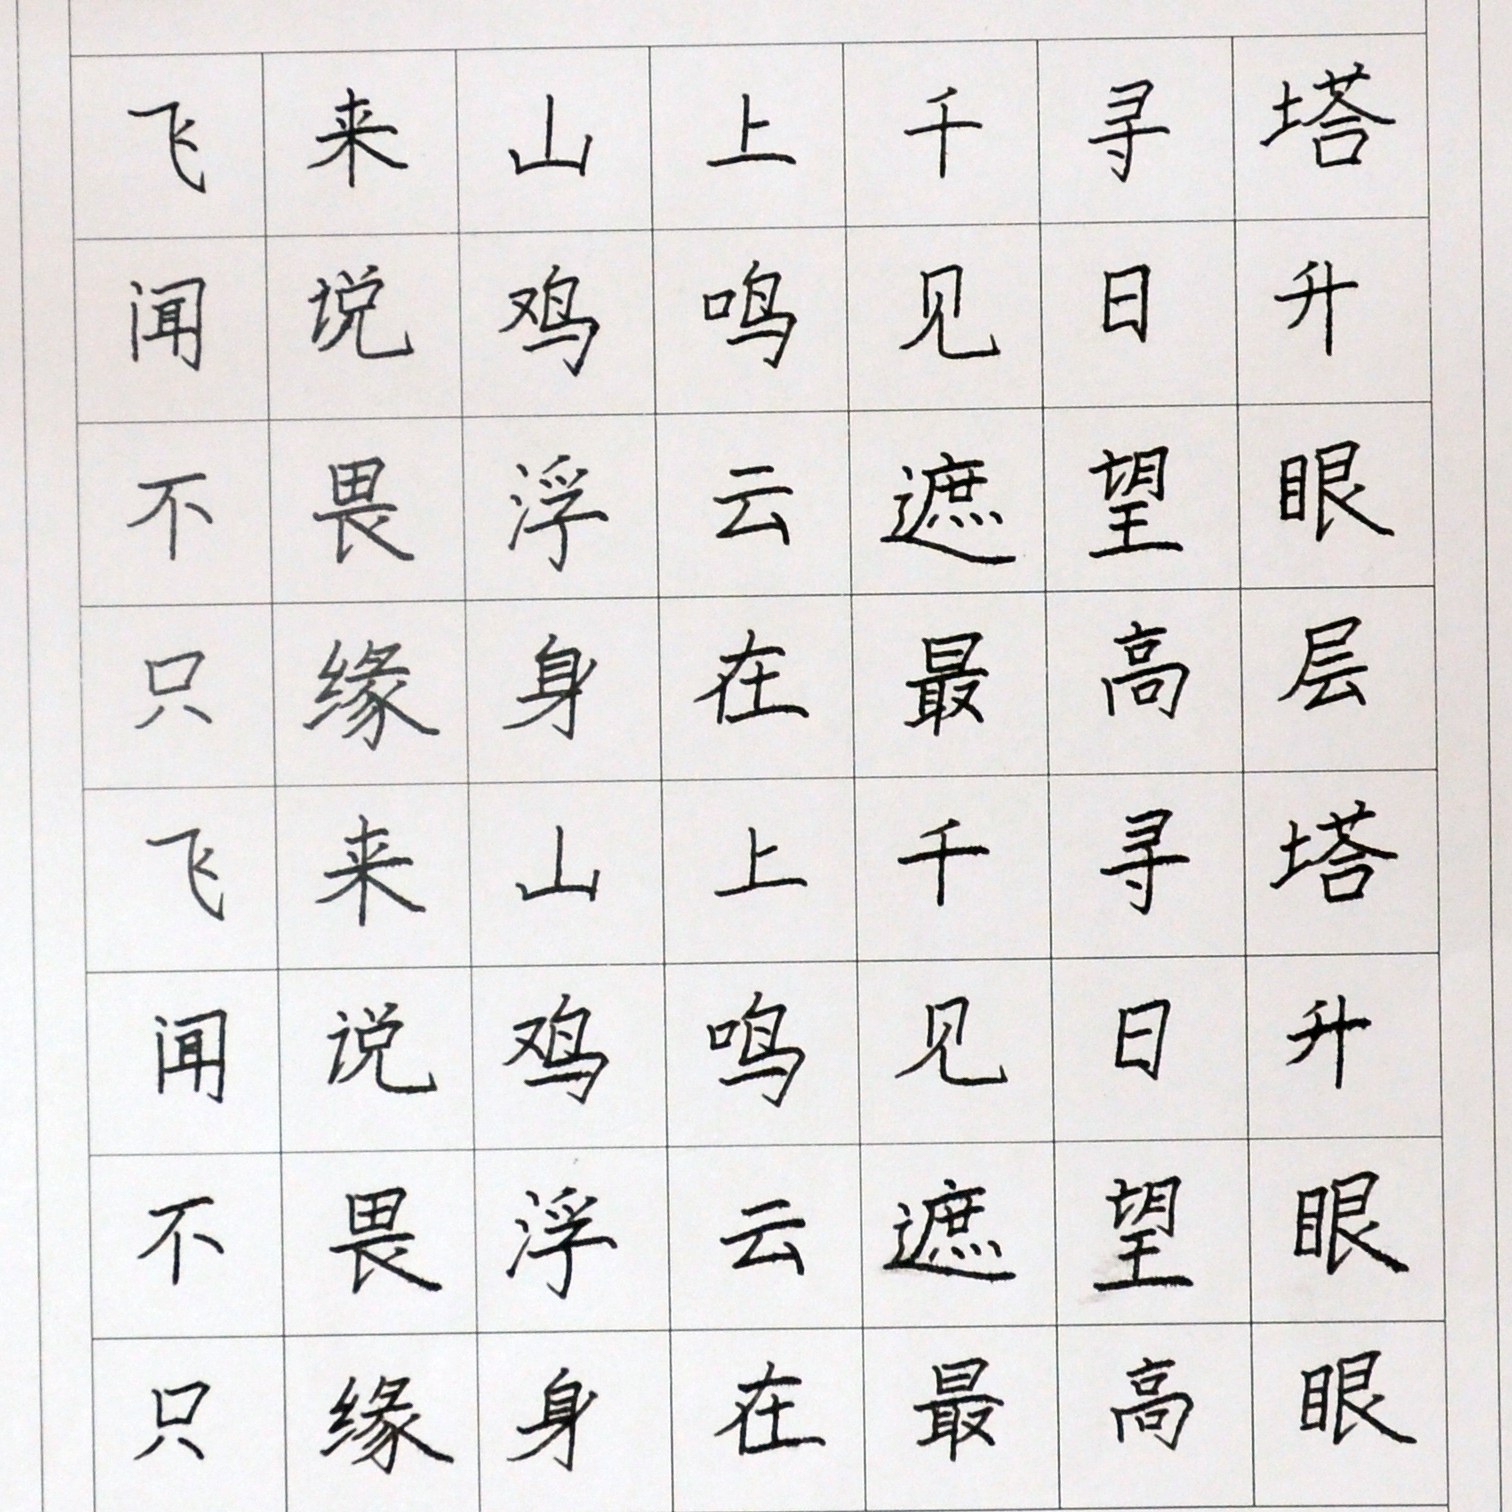 飞来山上千寻塔
闻说鸡鸣见日升
不畏浮云遮望眼
只缘身在最高层
飞来山上千寻塔
闻说鸡鸣见日升
不畏浮云遮望眼
只缘身在最高眼